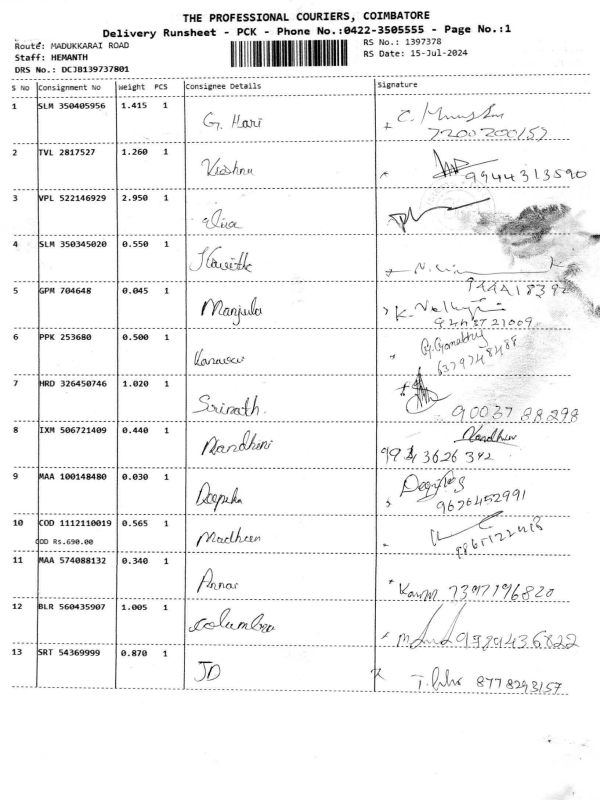 THE PROFESSIONAL COURIERS, COIMBATORE
Delivery Runsheet - PCK - Phone No.:0422-3505555 - Page No.:1
Route: MADUKKARAI ROAD
RS No.: 1397378
Staff: HEMANTH
RS Date: 15-Jul-2024
DRS No.: DCJB139737801
S No Consignment No Weight PCS Consignee Details Signature
1 SLM 350405956 1.415 1 G. Hari
7200200157
2 TVL 2817527 1.260 1 Krishna 9944313590
3 VPL 522146929 2.950 1
4 SLM 350345020 0.550 1
5 GPM 704648 0.045 1 Manjula K.
9443721009
6 PPK 253680 0.500 1
6379748488
7 HRD 326450746 1.020 1 Srinath.
9003788298
8 IXM 506721409 0.440 1 Nandhini Nandhini
9943626342
9 MAA 100148480 0.030 1 Deepika
9626452991
10 COD 1112110019 0.565 1
COD Rs.690.00
11 MAA 574088132 0.340 1 Annai 7397196820
12 BLR 560435907 1.005 1 Columbia 9989436822
13 SRT 54369999 0.870 1 JD 8778293157